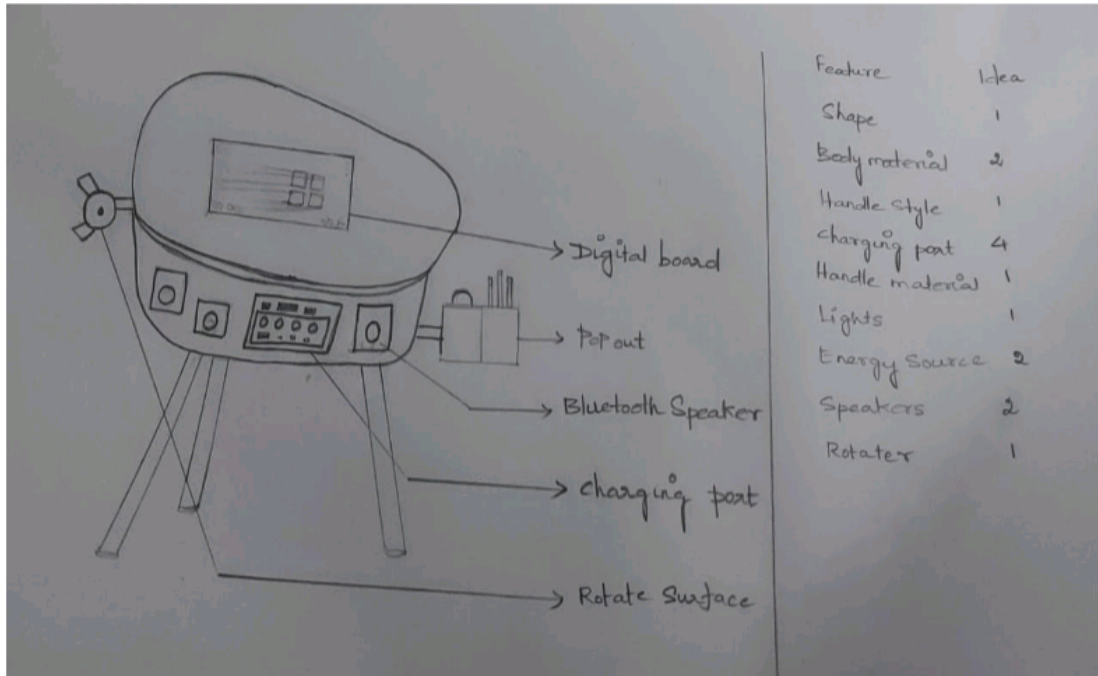 Digital board
Pop out
Bluetooth Speaker
Charging port
Rotate Surface
Feature Idea
Shape 1
Body material 2
Handle Style 1
charging port 4
Handle material 1
Lights 1
Energy Source 2
Speakers 2
Rotater 1